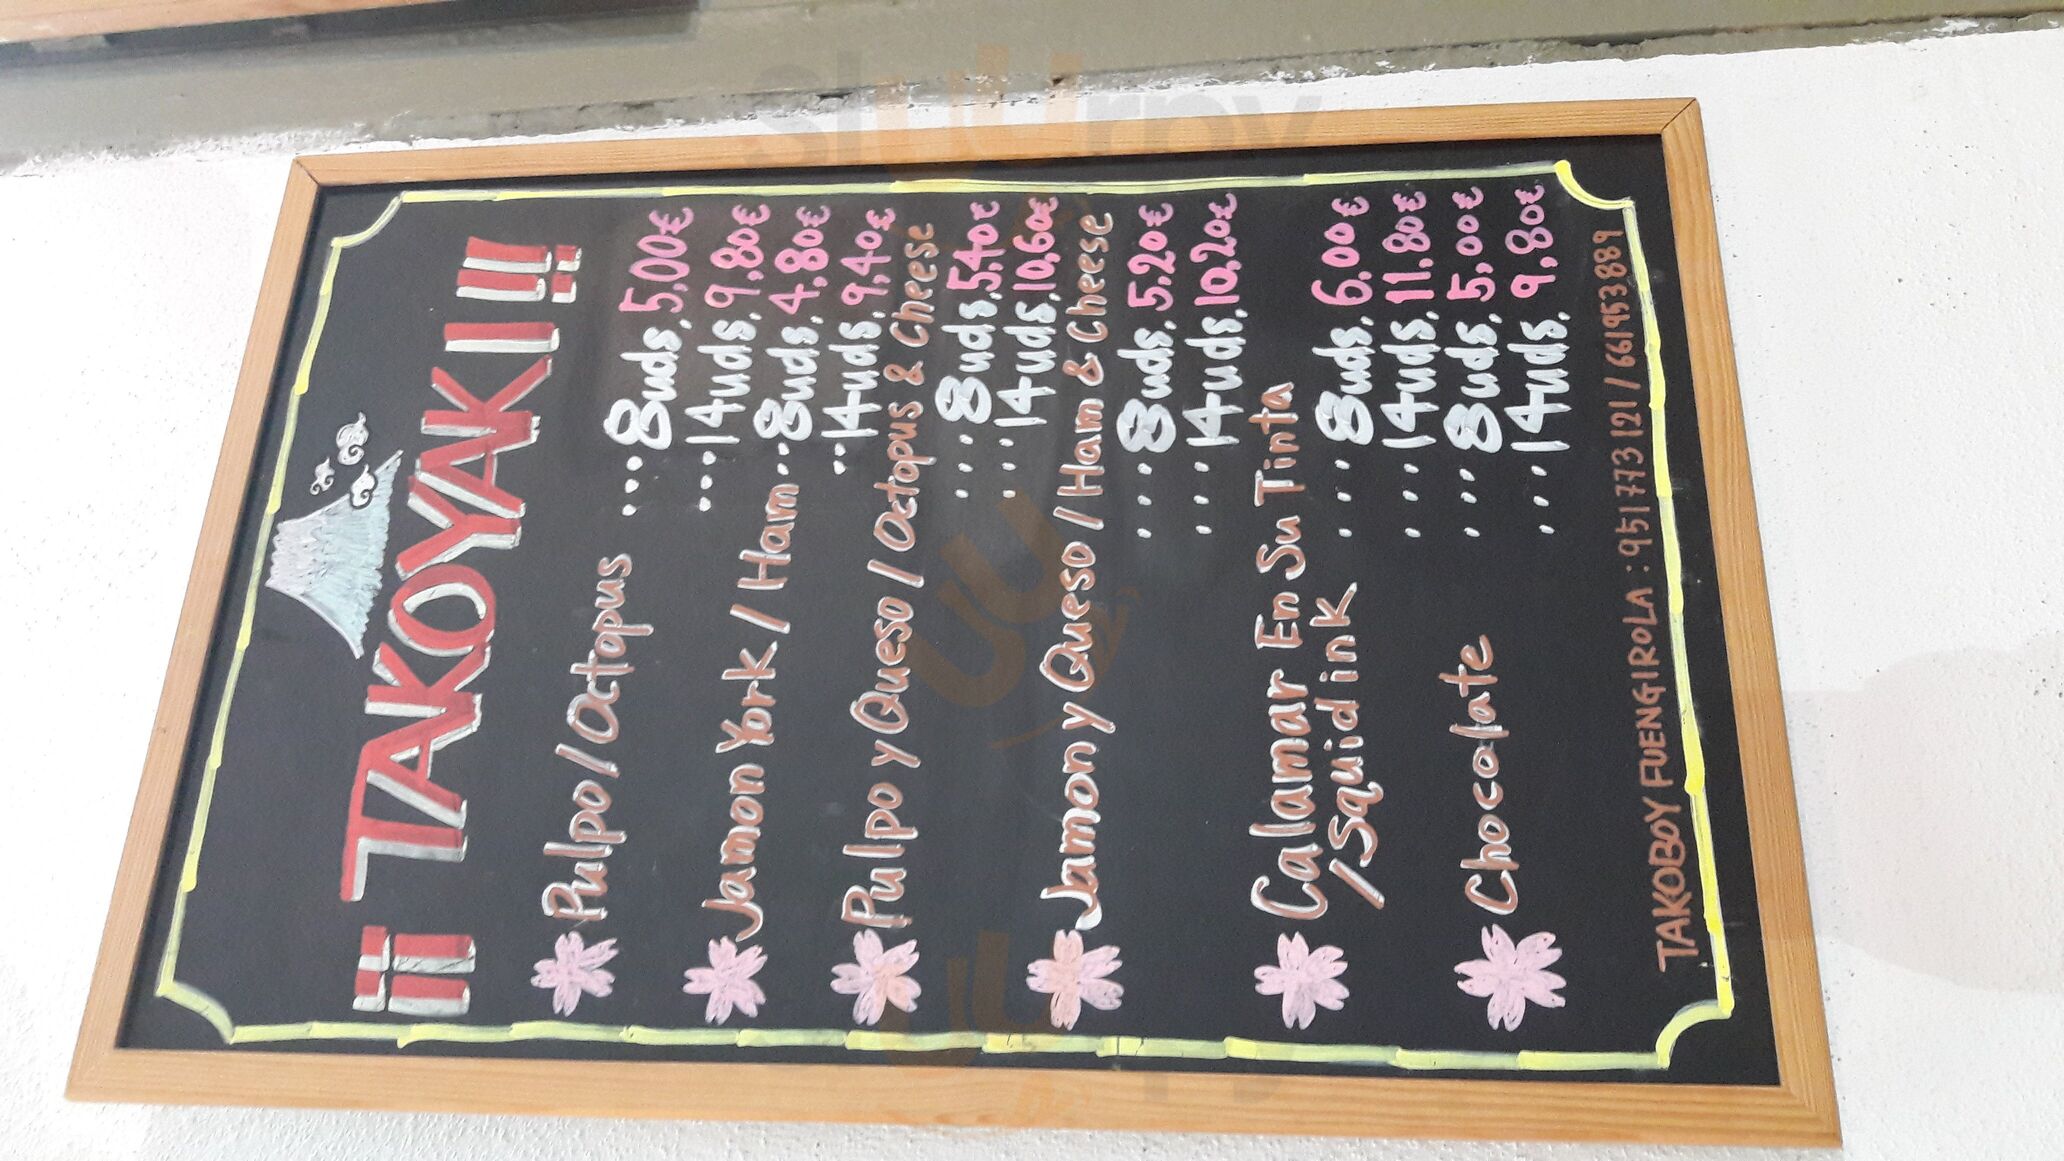 ¡¡TAKOYAKI!!
Pulpo/Octopus ...8uds. 5,00€
...14uds. 9,80€
Jamon York/Ham..8uds. 4,80€
..14uds. 9,40€
Pulpo y Queso/Octopus & Cheese
...8uds. 5,40€
...14uds. 10,60€
Jamon y Queso/Ham & Cheese
...8uds. 5,20€
...14uds. 10,20€
Calamar En Su Tinta
/Squid inK ...8uds. 6,00€
...14uds. 11.80€
Chocolate ...8uds. 5,00€
...14uds. 9,80€
TAKOBOY FUENGIROLA : 951 773 121 / 661953889
sluurpy